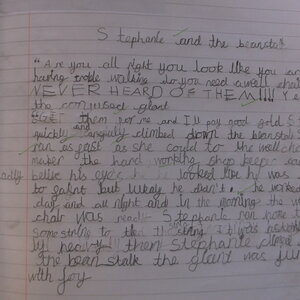 Stephanie and the beansta
"Are you all right you look like you are
having troble walking do you need a well chai
NEVER HEARD OF THEM!!!! Y
the confused giant
"GET them for me and I'll pay good gold S
quickly and carefully climbed down the beanstalk
ran as fast as she could to the well chair
maker the hard working shop keeper
belive his eyes he looked like he was
to faint but lukely he didn't. he worked
day and all night and In the morning the w
chair was ready Stephanie ran home
some string to tie the
Stephanie climed
the bean stalk the giant was
with joy